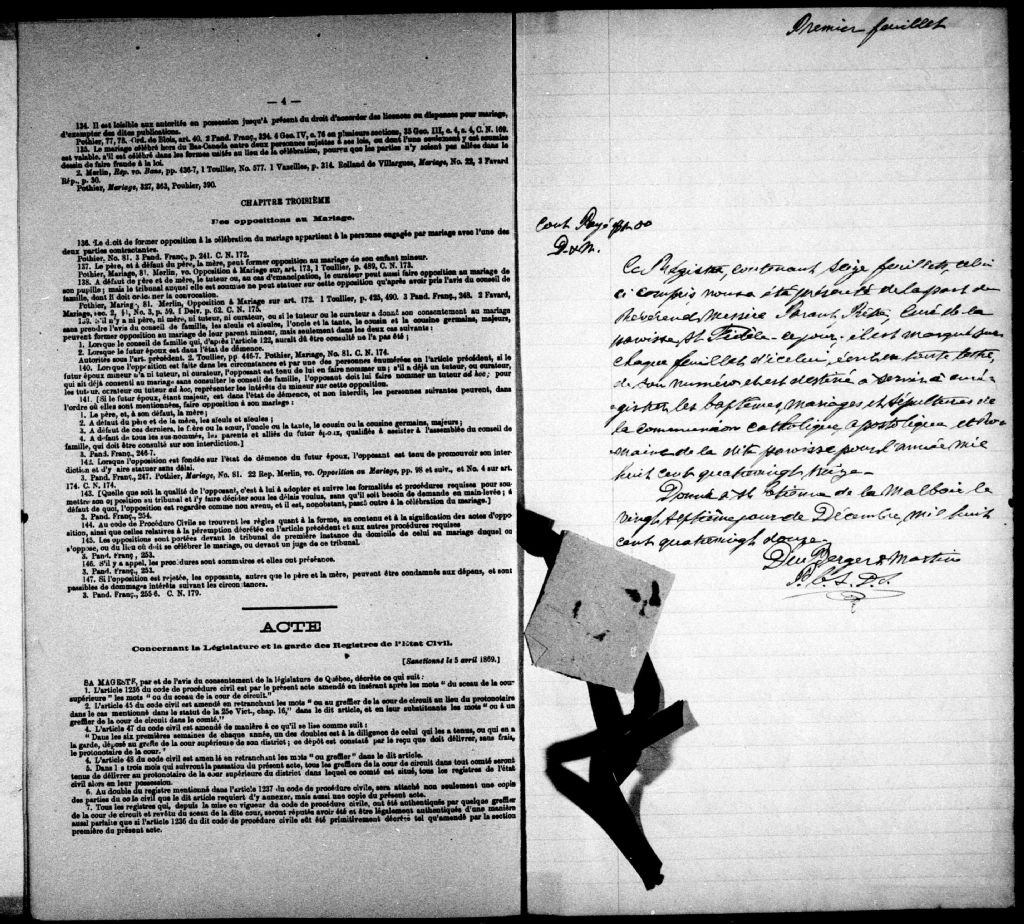 — 4 —
134. Il est loisible aux autorités en possession jusqu'à présent du droit d'accorder des licences ou dispenses pour mariage,
d'exempter des dites publications.
Pothier, 77, 78. Ord. de Blois, art. 40. 2 Pand. Franç., 324. 4 Geo. IV, c. 76 en plusieurs sections, 35 Geo. III, c. 4, s. 4, C. N. 169.
135. Le mariage célébré hors du Bas-Canada entre deux personnes sujettes à ses lois, ou dont l'une seulement y est soumise
est valable, s'il est célébré dans les formes usitées au lieu de la célébration, pourvu que les parties n'y soient pas allées dans le
dessin de faire fraude à la loi.
2. Merlin, Rép. vo. Bans, pp. 436-7, 1 Toullier, No. 577. 1 Vazeilles, p. 314. Rolland de Villargues, Mariage, No. 22, 3 Favard
Rép., p. 30.
Pothier, Mariage, 327, 363, Pouhier, 390.
CHAPITRE TROISIÈME
Des oppositions au Mariage.
136. Le droit de former opposition à la célébration du mariage appartient à la personne engagée par mariage avec l'une des
deux parties contractantes.
Pothier, No. 81. 3 Pand. Franç., p. 241. C. N. 172.
137. Le père, et à défaut du père, la mère, peut former opposition au mariage de son enfant mineur.
Pothier, Mariage, 81. Merlin, vo. Opposition à Mariage sur, art. 173, 1 Toullier, p. 489, C. N. 173.
138. A défaut de père et de mère, le tuteur, et le curateur ou, au cas d'émancipation, le curateur peut aussi faire opposition au mariage de
son pupille; mais le tribunal auquel elle est soumise ne peut statuer sur cette opposition qu'après avis pris l'avis du conseil de
famille, dont il doit ordonner la convocation.
Pothier, Mariage, 81. Merlin, Opposition à Mariage sur art. 172. 1 Toullier, p. 425, 490. 3 Pand. Franç., 248. 2 Favard,
Mariage, sec. 2, §1, No. 3, p. 59. 1 Delv. p. 62. C. N. 175.
139. S'il n'y a ni père, ni mère, ni tuteur, ni curateur, ou si le tuteur ou le curateur a donné son consentement au mariage
sans prendre l'avis du conseil de famille, les aïeuls et aïeules, l'oncle et la tante, le cousin et la cousine germains, majeurs,
peuvent former opposition au mariage de leur parent mineur, mais seulement dans les deux cas suivants:
1. Lorsque le conseil de famille qui, d'après l'article 122, aurait dû être consulté ne l'a pas été;
2. Lorsque le futur époux est dans l'état de démence.
Autorités sous l'art. précédent. 2. Toullier, pp. 446-7. Pothier, Mariage, No. 81. C. N. 174.
140. Lorsque l'opposition est faite dans les circonstances et par une des personnes énumérées en l'article précédent, si le
futur époux mineur n'a ni tuteur, ni curateur, l'opposant est tenu de lui en faire nommer un; s'il a déjà un tuteur, ou curateur,
qui ait déjà consenti au mariage sans consulter le conseil de famille, l'opposant doit lui faire nommer un tuteur ad hoc; pour
les tuteur, curateur ou tuteur ad hoc, représenter les intérêts du mineur sur cette opposition.
141. [Si le futur époux, étant majeur, est dans l'état de démence, et non interdit, les personnes suivantes peuvent, dans
l'ordre où elles sont mentionnées, faire opposition à son mariage:
1. Le père, et, à son défaut, la mère;
2. A défaut du père et de la mère, les aïeuls et aïeules;
3. A défaut de ces derniers, le frère ou la sœur, l'oncle ou la tante, le cousin ou la cousine germains, majeurs;
4. A défaut de tous les sus-nommés, les parents et alliés du futur époux, qualifiés à assister à l'assemblée du conseil de
famille, qui doit être consulté sur son interdiction.]
3. Pand. Franç., 246-7.
142. Lorsque l'opposition est fondée sur l'état de démence du futur époux, l'opposant est tenu de promouvoir son inter-
diction et d'y faire statuer sans délai.
3. Pand. Franç., 247. Pothier, Mariage, No. 81. 22 Rep. Merlin, vo. Opposition au Mariage, pp. 98 et suiv., et No. 4 sur art.
174. C. N. 174.
143. [Quelle que soit la qualité de l'opposant, c'est à lui à adopter et suivre les formalités et procédures requises pour sou-
mettre son opposition au tribunal et l'y faire décider sous les délais voulus, sans qu'il soit besoin de demande en main-levée; à
défaut de quoi, l'opposition est regardée comme non avenu, et il est, nonobstant, passé outre à la célébration du mariage.]
3. Pand. Franç., 254.
144. Au code de Procédure Civile se trouvent les règles quant à la forme, au contenu et à la signification des actes d'oppo-
sition, ainsi que celles relatives à la péremption décrétée en l'article précédent et aux autres procédures requises
145. Les oppositions sont portées devant le tribunal de première instance du domicile de celui au mariage duquel on
s'oppose, ou du lieu où doit se célébrer le mariage, ou devant un juge de ce tribunal.
3. Pand. Franç., 253.
146. S'il y a appel, les procédures sont sommaires et elles ont préséance.
3. Pand. Franç., 253.
147. Si l'opposition est rejetée, les opposants, autres que le père et la mère, peuvent être condamnés aux dépens, et sont
passibles de dommages-intérêts suivant les circonstances.
3. Pand. Franç., 255-6. C. N. 179.
ACTE
Concernant la Législature et la garde des Registres de l'Etat Civil.
[Sanctionné le 5 avril 1869.]
SA MAGESTE, par et de l'avis du consentement de la législature de Québec, décrète ce qui suit:
1. L'article 1236 du code de procédure civil est par le présent acte amendé en insérant après les mots " du sceau de la cour
supérieure " les mots " ou du sceau de la cour de circuit."
2. L'article 45 du code civil est amendé en retranchant les mots " ou au greffier de la cour de circuit au lieu du protonotaire
dans le cas mentionnée dans le statut de la 25e Vict., chap. 16," dans le dit article, et en leur substituants les mots " ou à un
greffier de la cour de circuit dans le comté."
4. L'article 47 du code civil est amendé de manière à ce qu'il se lise comme suit:
" Dans les six premières semaines de chaque année, un des doubles est à la diligence de celui qui les a tenus, ou qui en a
la garde, déposé au greffe de la cour supérieure de son district; ce dépôt est constaté par le reçu que doit délivrer, sans frais,
le protonotaire de la cour."
4. L'article 48 du code civil est amendé en retranchant les mots " ou greffier " dans le dit article.
5. Dans l s trois mois qui suivront la passation du présent acte, tous les greffiers de la cour de circuit dans tout comté seront
tenus de délivrer au protonotaire de la cour supérieure du district dans lequel ce comté est situé, tous les registres de l'état
civil alors en leur possession.
6. Au double du registre mentionné dans l'article 1237 du code de procédure civile, sera attaché non seulement une copie
des parties du code civil que le dit article requiert d'y annexer, mais aussi une copie du présent acte.
7. Tous les registres qui, depuis la mise en vigueur du code de procédure civile, ont été authentiqués par quelque greffier
de la cour de circuit et revêtu du sceau de la dite cour, seront réputés avoir été et être légalement authentiqués d'une manière
aussi parfaite que si l'article 1236 du dit code de procédure civile eût été primitivement décrété tel qu'amendé par la section
première du présent acte.
Premier feuillet
Cout Payé
D. & M.
Ce Régistre, contenant Seize feuillets, celui
ci compris nous a été présenté de la part du
Révérend Messire Parant Ptre, Curé de la
paroisse St Fidèle ce jour; il est marqué sur
chaque feuillet d'icelui, écrit en toute lettre,
de son numéro et est destiné à servir à enré-
gistrer les baptêmes, mariages et sépultures de
la communion catholique, apostolique et Ro-
maine de la dite paroisse pour l'année mil
huit cent quatrevingt treize.
Donné à St Etienne de la Malbaie le
vingt septième jour de Décembre, mil huit
cent quatrevingt douze.
Du Berger & Martin
P. C. S. D. S.